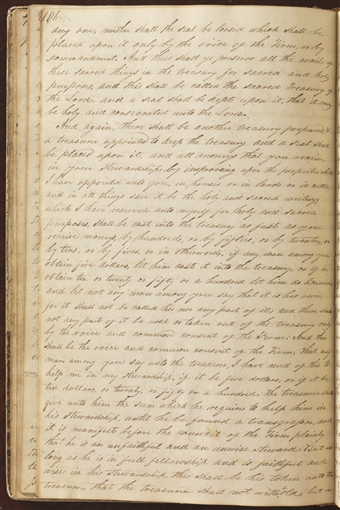 106
any one, neither shall the seal be loosed which shall be
placed upon it only by the voice of the Firm, or by
commandment. And thus shall ye preserve all the avails of
these sacred things in the treasury for sacred and holy
purposes, and this shall be called the sacred Treasury of
the Lord. and a seal shall be kept upon it, that it may
be holy and consecrated unto the Lord.
And again, there shall be another treasury prepared &
a treasurer appointed to keep the treasury and a seal shall
be placed upon it, and all moneys that you receive
in your Stewardships by improving upon the properties which
I have appointed unto you, in houses or in lands or in cattle
and in all things save it be the holy and sacred writings
which I have reserved unto myself for holy and sacred
purposes, shall be cast into the treasury as fast as you
receive moneys, by hundreds, or by fifties, or by twenties, or
by tens, or by fives, or in otherwords, if any man among you
obtain five dollars, let him cast it into the treasury, or if he
obtain ten or twenty or fifty or a hundred let him do likewise
and let not any man among you say that it is his own
for it shall not be called his nor any part of it, and there shall
not any part of it be used or taken out of the treasury only
by the voice and common consent of the Firm. And this
shall be the voice and common consent of the Firm, that any
man among you say unto the treasurer, I have need of this to
help me in my stewardship, if it be five dollars, or if it be
ten dollars or twenty or fifty or a hundred. The treasurer shall
give unto him the sum which he requires to help him in
his stewardship, until he be found a transgressor and
it is manifest before the council of the Firm plainly
that he is an unfaithful and an unwise steward. But so
long as he is in full fellowship and is faithful and
wise in his stewardship, this shall be his token unto the
treasurer, that the treasurer shall not withold. but in